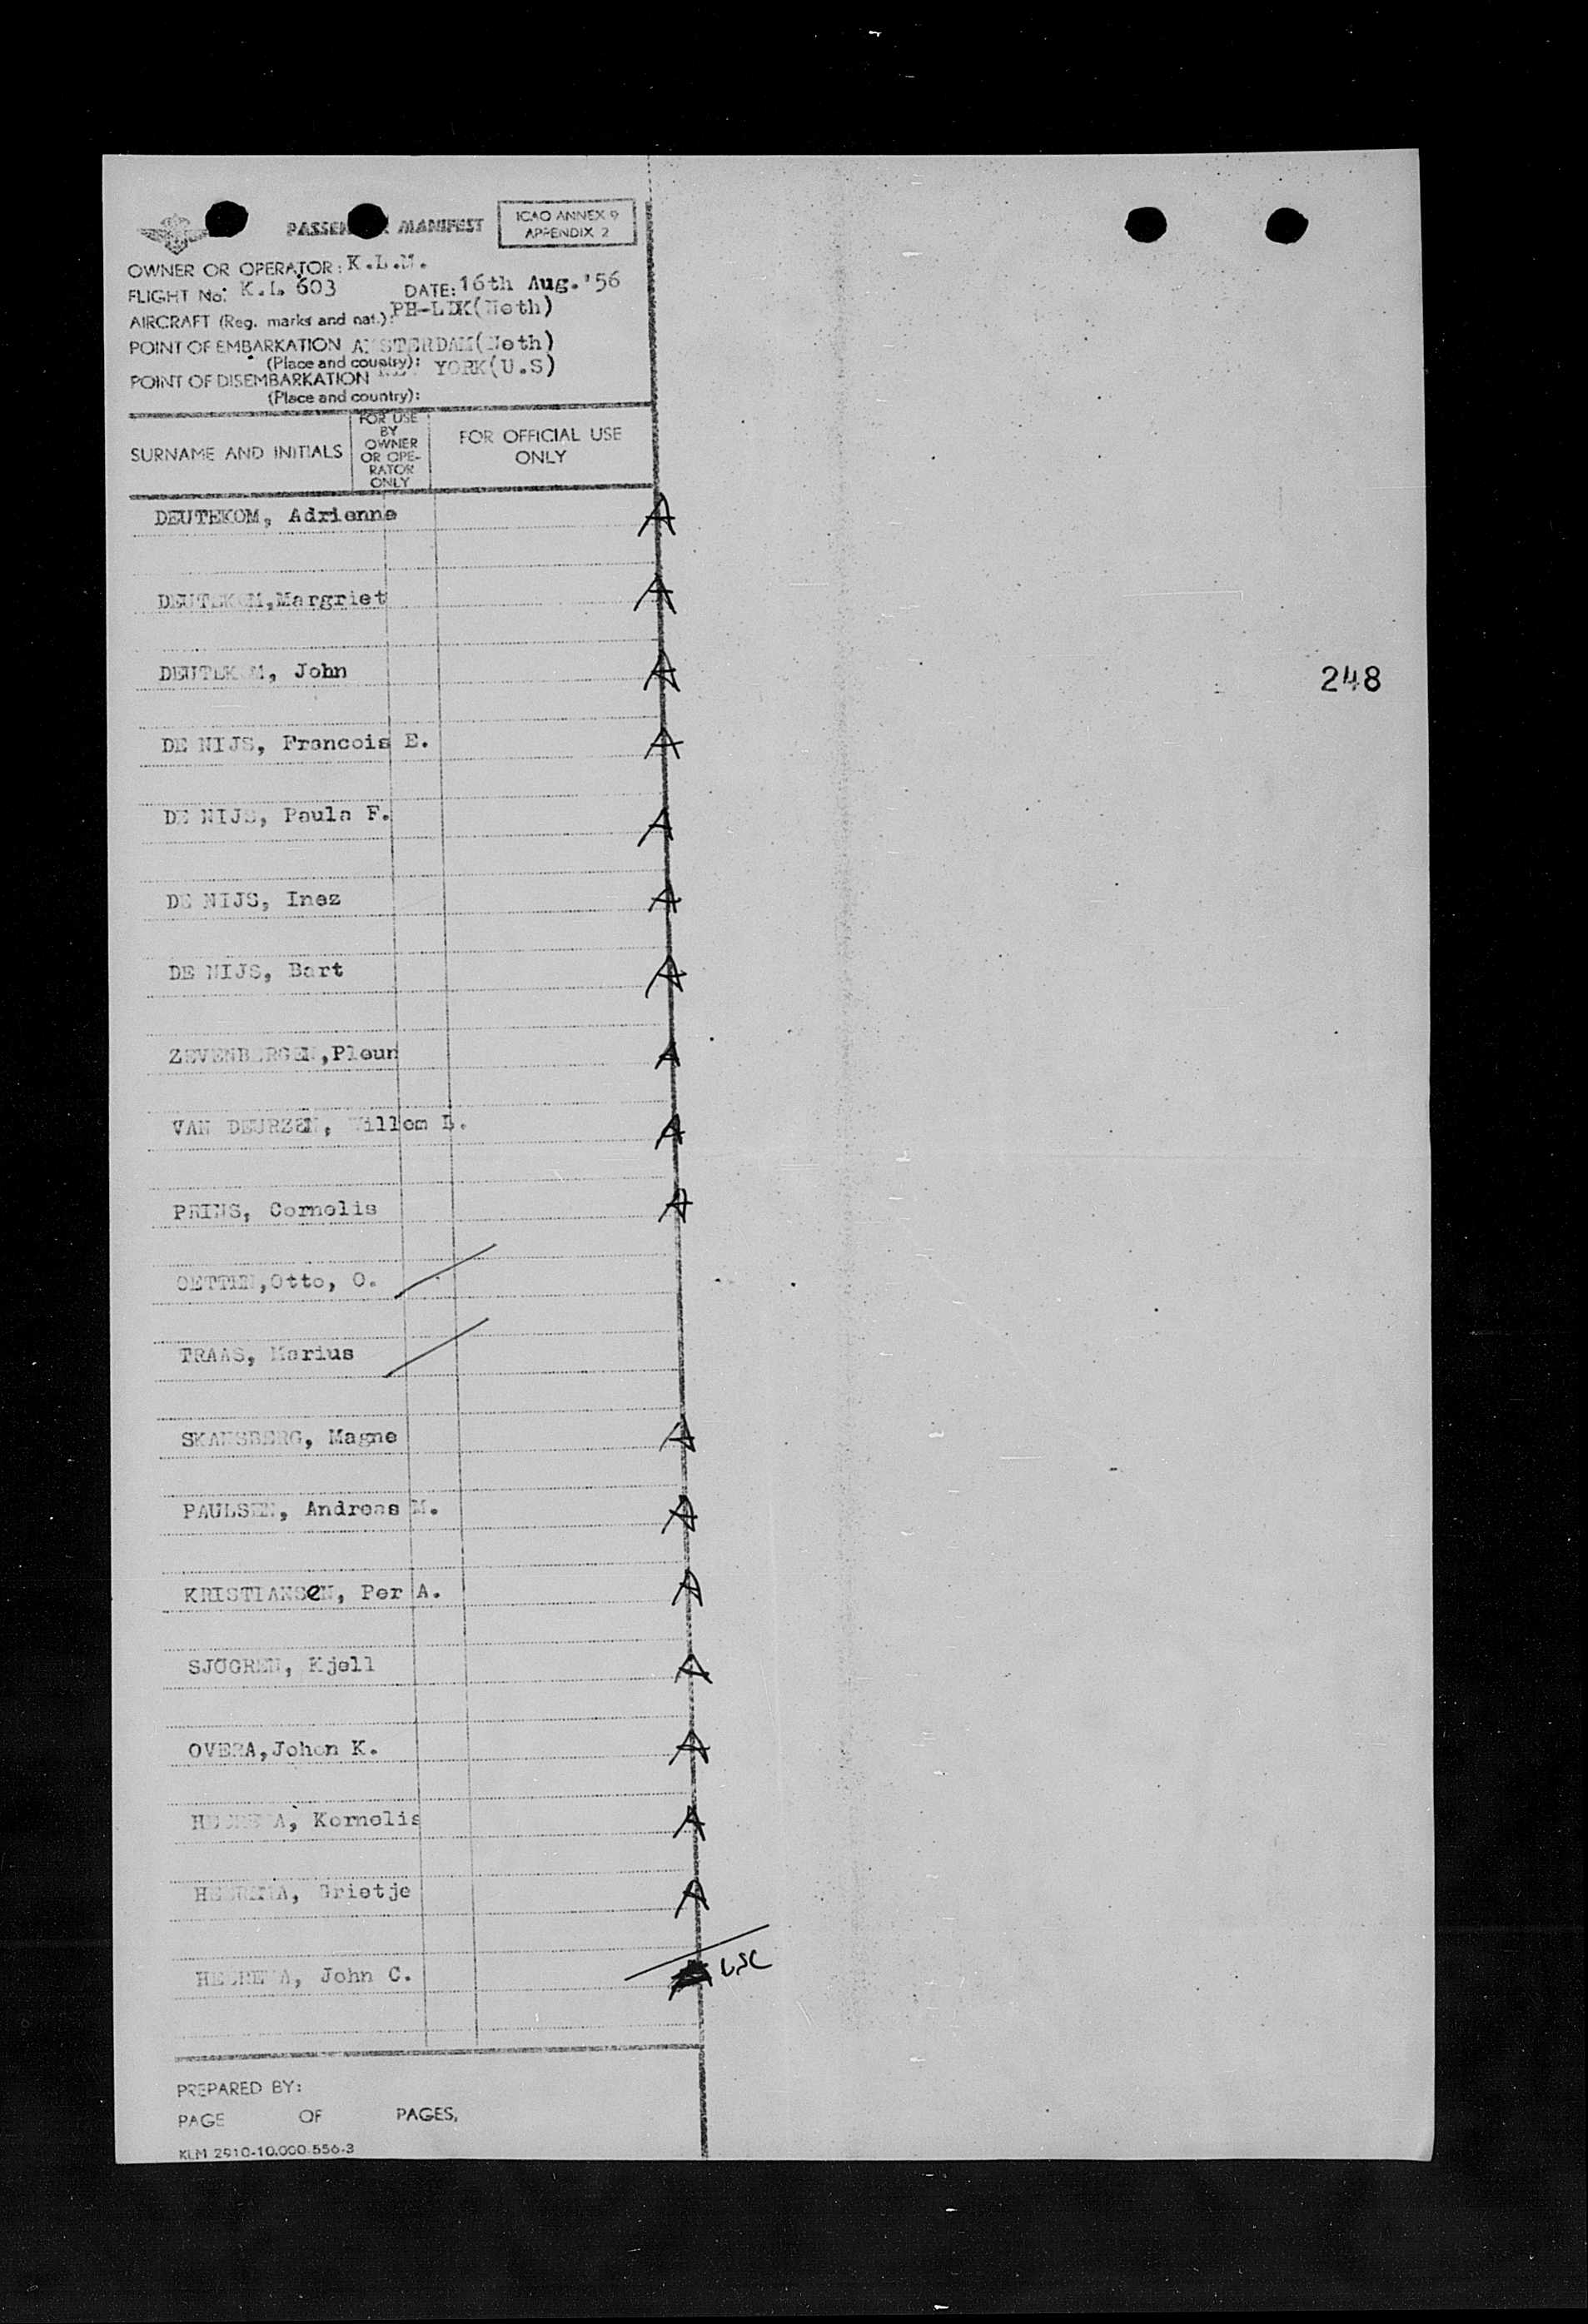 PASSENGER MANIFEST
ICAO ANNEX 9
APPENDIX 2
OWNER OR OPERATOR: K.L.M.
FLIGHT No: K.L. 603 DATE: 16th Aug.'56
AIRCRAFT (Reg. marks and nat.): PH-LDK(Neth)
POINT OF EMBARKATION AMSTERDAM(Neth)
(Place and country):
POINT OF DISEMBARKATION NEW YORK(U.S)
(Place and country):
SURNAME AND INITIALS
FOR USE
BY
OWNER
OR OPE-
RATOR
ONLY
FOR OFFICIAL USE
ONLY
DEUTEKOM, Adrienne A
DEUTEKOM,Margriet A
DEUTEKOM, John A
248
DE NIJS, Francois E. A
DE NIJS, Paula F. A
DE NIJS, Inez A
DE NIJS, Bart A
ZEVENBERGEN,Pleun A
VAN DEURZEN, Willem L. A
PRINS, Cornelis A
OETTEN,Otto, O.
TRAAS, Marius
SKANSBERG, Magne A
PAULSEN, Andreas M. A
KRISTIANSeN, Per A. A
SJÖGREN, Kjell A
OVERA,Johan K. A
HEEREMA, Kornelis A
HEEREMA, Grietje A
HEEREMA, John C. USC
PREPARED BY:
PAGE OF PAGES,
KLM 2910-10.000-556-3